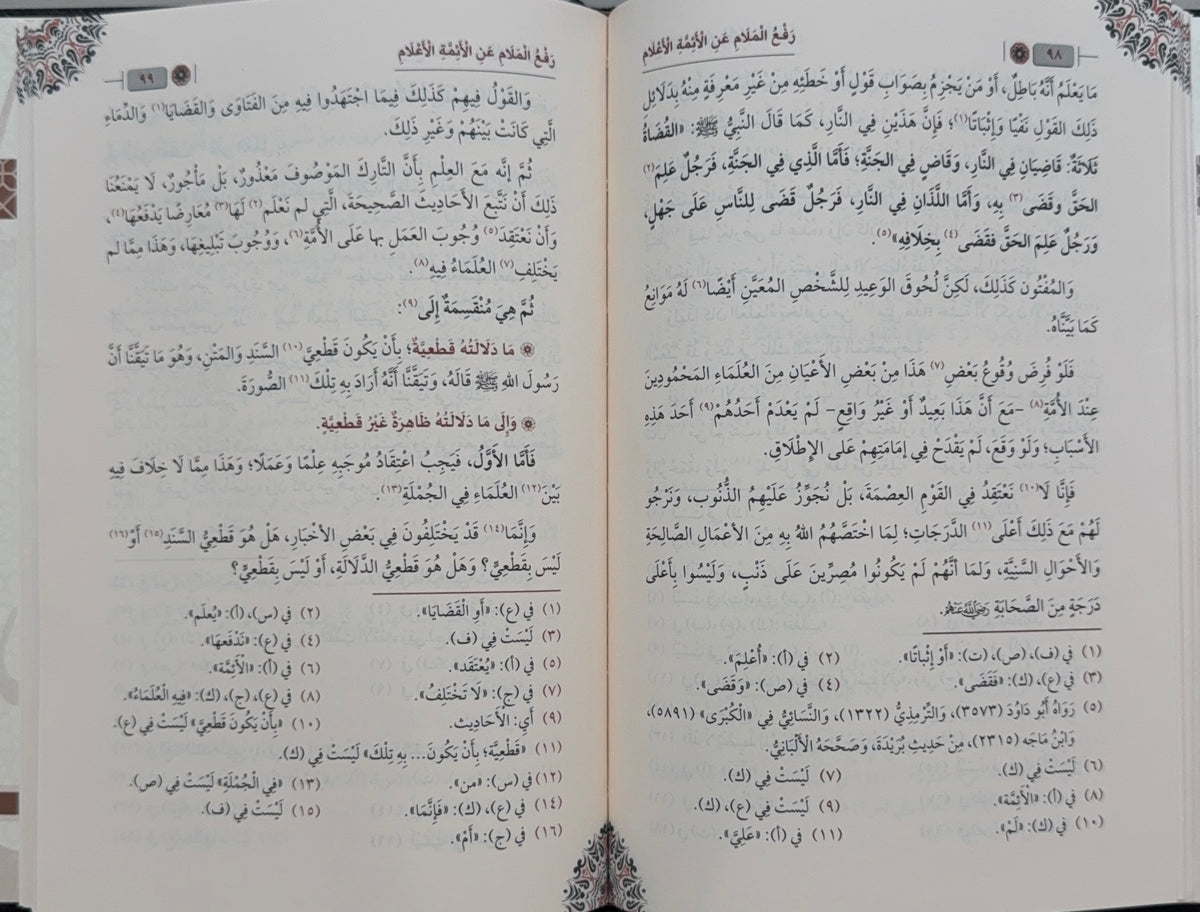 رَفْعُ الْمَلَامِ عَنِ الْأَئِمَّةِ الْأَعْلَامِ
٩٨
مَا يَعْلَمُ أَنَّهُ بَاطِلٌ، أَوْ مَنْ يَجْزِمُ بِصَوَابِ قَوْلٍ أَوْ خَطَئِهِ مِنْ غَيْرِ مَعْرِفَةٍ مِنْهُ بِدَلَائِلِ
ذَلِكَ القَوْلِ نَفْيًا وَإِثْبَاتًا(١)؛ فَإِنَّ هَذَيْنِ فِي النَّارِ، كَمَا قَالَ النَّبِيُّ ﷺ: «القُضَاةُ
ثَلَاثَةٌ: قَاضِيَانِ فِي النَّارِ، وَقَاضٍ فِي الجَنَّةِ؛ فَأَمَّا الَّذِي فِي الجَنَّةِ، فَرَجُلٌ عَلِمَ(٢)
الحَقَّ وقَضَى(٣) بِهِ، وَأَمَّا اللَّذَانِ فِي النَّارِ، فَرَجُلٌ قَضَى لِلنَّاسِ عَلَى جَهْلٍ،
وَرَجُلٌ عَلِمَ الحَقَّ فَقَضَى(٤) بِخِلَافِهِ»(٥).
وَالمُفْتُون كَذَلِكَ، لَكِنَّ لُحُوقَ الوَعِيدِ لِلشَّخْصِ المُعَيَّنِ أَيْضًا(٦) لَهُ مَوَانِعُ
كَمَا بَيَّنَّاهُ.
فَلَوْ فُرِضَ وُقُوعُ بَعْضِ(٧) هَذَا مِنْ بَعْضِ الأَعْيَانِ مِنَ العُلَمَاءِ المَحْمُودِينَ
عِنْدَ الأُمَّةِ(٨) -مَعَ أَنَّ هَذَا بَعِيدٌ أَوْ غَيْرُ وَاقِعٍ- لَمْ يَعْدَمْ أَحَدُهُمْ(٩) أَحَدَ هَذِهِ
الأَسْبَابِ؛ وَلَوْ وَقَعَ، لَمْ يَقْدَحْ فِي إِمَامَتِهِمْ عَلَى الإِطْلَاقِ.
فَإِنَّا لَا(١٠) نَعْتَقِدُ فِي القَوْمِ العِصْمَةَ، بَلْ نُجَوِّزُ عَلَيْهِمُ الذُّنُوب، وَنَرْجُو
لَهُمْ مَعَ ذَلِكَ أَعْلَى(١١) الدَّرَجَاتِ؛ لِمَا اخْتَصَّهُمُ اللهُ بِهِ مِنَ الأَعْمَالِ الصَّالِحَةِ
وَالأَحْوَالِ السَّنِيَّةِ، وَلمَا أَنَّهُمْ لَمْ يَكُونُوا مُصِرِّينَ عَلَى ذَنْبٍ، وَلَيْسُوا بِأَعْلَى
دَرَجَةٍ مِنَ الصَّحَابَةِ رَضِيَ اللَّهُ عَنْهُمْ.
(١) فِي (ف)، (ص)، (ت): «أَوْ إِثْبَاتًا».
(٢) فِي (أ): «أُعْلِمَ».
(٣) فِي (ع)، (ك): «فَقَضَى».
(٤) فِي (ص): «وَقَضَى».
(٥) رَوَاهُ أَبُو دَاوُدَ (٣٥٧٣)، وَالتِّرْمِذِيُّ (١٣٢٢)، وَالنَّسَائِيُّ فِي «الْكُبْرَى» (٥٨٩١)،
وَابْنُ مَاجَه (٢٣١٥)، مِنْ حَدِيثِ بُرَيْدَةَ، وَصَحَّحَهُ الْأَلْبَانِيُّ.
(٦) لَيْسَتْ فِي (ك).
(٧) لَيْسَتْ فِي (ك).
(٨) فِي (أ): «الْأَئِمَّة».
(٩) لَيْسَتْ فِي (ع)، (ك).
(١٠) فِي (ك): «لَمْ».
(١١) فِي (أ): «عَلِيَّ».
رَفْعُ الْمَلَامِ عَنِ الْأَئِمَّةِ الْأَعْلَامِ
٩٩
وَالقَوْلُ فِيهِمْ كَذَلِكَ فِيمَا اجْتَهَدُوا فِيهِ مِنَ الفَتَاوَى وَالقَضَايَا(١) وَالدِّمَاءِ
الَّتِي كَانَتْ بَيْنَهُمْ وَغَيْرِ ذَلِكَ.
ثُمَّ إِنَّه مَعَ العِلْمِ بِأَنَّ التَّارِكَ المَوْصُوفَ مَعْذُورٌ، بَلْ مَأْجُورٌ، لَا يَمْنَعُنَا
ذَلِكَ أَنْ نَتَّبِعَ الأَحَادِيثَ الصَّحِيحَةَ، الَّتِي لم نَعْلَم(٢) لَهَا(٣) مُعَارِضًا يَدْفَعُهَا(٤)،
وَأَنْ نَعْتَقِدَ(٥) وُجُوبَ العَمَلِ بها عَلَى الأُمَّةِ(٦)، وَوُجُوبَ تَبْلِيغِهَا، وَهَذَا مِمَّا لم
يَخْتَلِفِ(٧) العُلَمَاءُ فِيهِ(٨).
ثُمَّ هِيَ مُنْقَسِمَةٌ إِلَى(٩):
مَا دَلَالَتُهُ قَطْعِيَّةٌ؛ بِأَنْ يَكُونَ قَطْعِيَّ(١٠) السَّنَدِ وَالمَتْنِ، وَهُوَ مَا تَيَقَّنَّا أَنَّ
رَسُولَ اللهِ ﷺ قَالَهُ، وَتَيَقَّنَّا أَنَّهُ أَرَادَ بِهِ تِلْكَ(١١) الصُّورَةَ.
وَإِلَى مَا دَلَالَتُهُ ظَاهِرَةٌ غَيْرُ قَطْعِيَّةٍ.
فَأَمَّا الأَوَّلُ، فَيَجِبُ اعْتِقَادُ مُوجَبِهِ عِلْمًا وَعَمَلًا؛ وَهَذَا مِمَّا لَا خِلَافَ فِيهِ
بَيْنَ(١٢) العُلَمَاءِ فِي الجُمْلَةِ(١٣).
وَإِنَّمَا(١٤) قَدْ يَخْتَلِفُونَ فِي بَعْضِ الأَخْبَارِ، هَلْ هُوَ قَطْعِيُّ السَّنَدِ(١٥) أَوْ(١٦)
لَيْسَ بِقَطْعِيٍّ؟ وَهَلْ هُوَ قَطْعِيُّ الدَّلَالَةِ، أَوْ لَيْسَ بِقَطْعِيٍّ؟
(١) فِي (ع): «أَوِ الْقَضَايَا».
(٢) فِي (س)، (أ): «يُعْلَم».
(٣) لَيْسَتْ فِي (ف).
(٤) فِي (ع): «نَدْفَعهَا».
(٥) فِي (أ): «يُعْتَقَد».
(٦) فِي (أ): «الْأَئِمَّة».
(٧) فِي (ج): «لَا تَخْتَلِفُ».
(٨) فِي (ع)، (ج)، (ك): «فِيهِ الْعُلَمَاءُ».
(٩) أَيِ: الْأَحَادِيث.
(١٠) «بِأَنْ يَكُونَ قَطْعِيَّ» لَيْسَتْ فِي (ع).
(١١) «قَطْعِيَّة؛ بِأَنْ يَكُونَ... بِهِ تِلْكَ» لَيْسَتْ فِي (ك).
(١٢) فِي (س): «من».
(١٣) «فِي الْجُمْلَةِ» لَيْسَتْ فِي (ص).
(١٤) فِي (ع)، (ك): «فَإِنَّمَا».
(١٥) لَيْسَتْ فِي (ف).
(١٦) فِي (ج): «أَمْ».